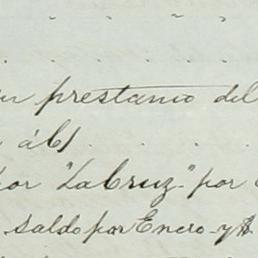 prestamo del
áb/
por "La Cruz" por
saldo por Enero y